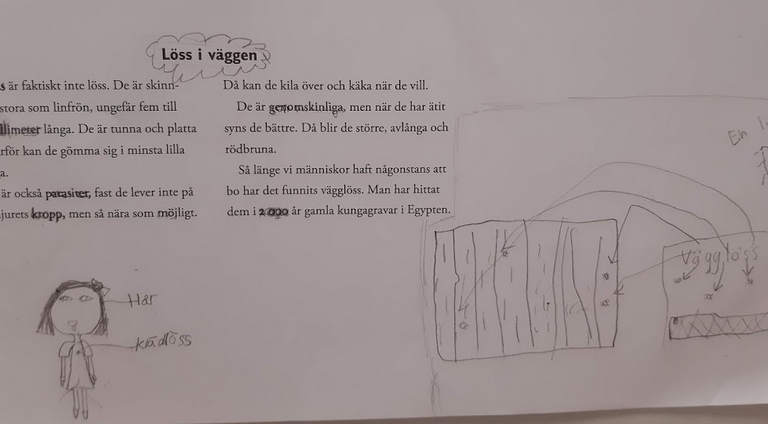 Löss i väggen
s är faktiskt inte löss. De är skinn-
stora som linfrön, ungefär fem till
llimeter långa. De är tunna och platta
rför kan de gömma sig i minsta lilla
a.
är också parasiter, fast de lever inte på
jurets kropp, men så nära som möjligt.
Då kan de kila över och käka när de vill.
De är genomskinliga, men när de har ätit
syns de bättre. Då blir de större, avlånga och
rödbruna.
Så länge vi människor haft någonstans att
bo har det funnits vägglöss. Man har hittat
dem i 2 000 år gamla kungagravar i Egypten.
En
Vägglöss
Hår
klädlöss